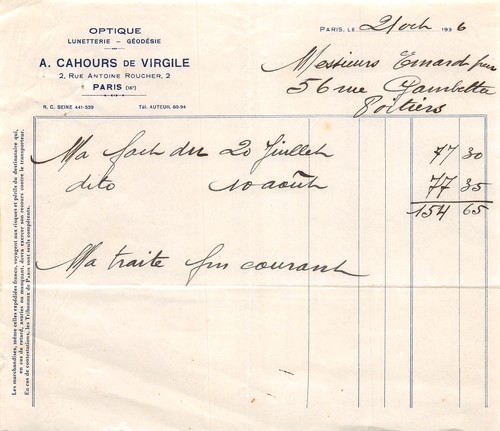 OPTIQUE
LUNETTERIE – GÉODÉSIE
A. CAHOURS DE VIRGILE
2, RUE ANTOINE ROUCHER, 2
PARIS (16e)
R. C. SEINE 441-539 TÉL. AUTEUIL 60-94
PARIS, LE 21 oct 1936
Messieurs Emard frères
56 rue Gambetta
Poitiers
Ma fact du 20 Juillet 77 30
dito 10 août 77 35
154 65
Ma traite fin courant
Les marchandises, même celles expédiées franco, voyagent aux risques et périls du destinataire qui,
en cas de retard, avaries ou manquant, devra exercer son recours contre le transporteur.
En cas de contestations, les Tribunaux de Paris sont seuls compétents.